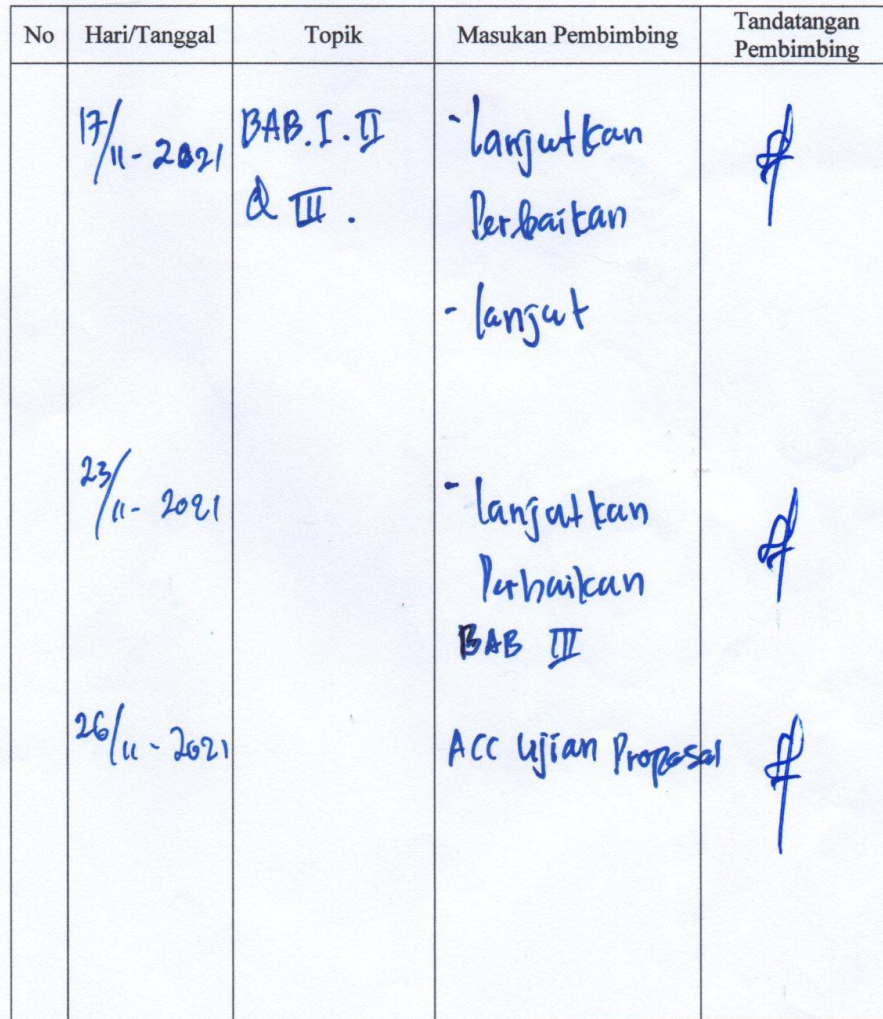 No Hari/Tanggal Topik Masukan Pembimbing Tandatangan Pembimbing
17/11-2021 BAB. I. II - lanjutkan
& III. Perbaikan
- lanjut
23/11-2021 - lanjutkan
Perbaikan
BAB III
26/11-2021 ACC Ujian Proposal